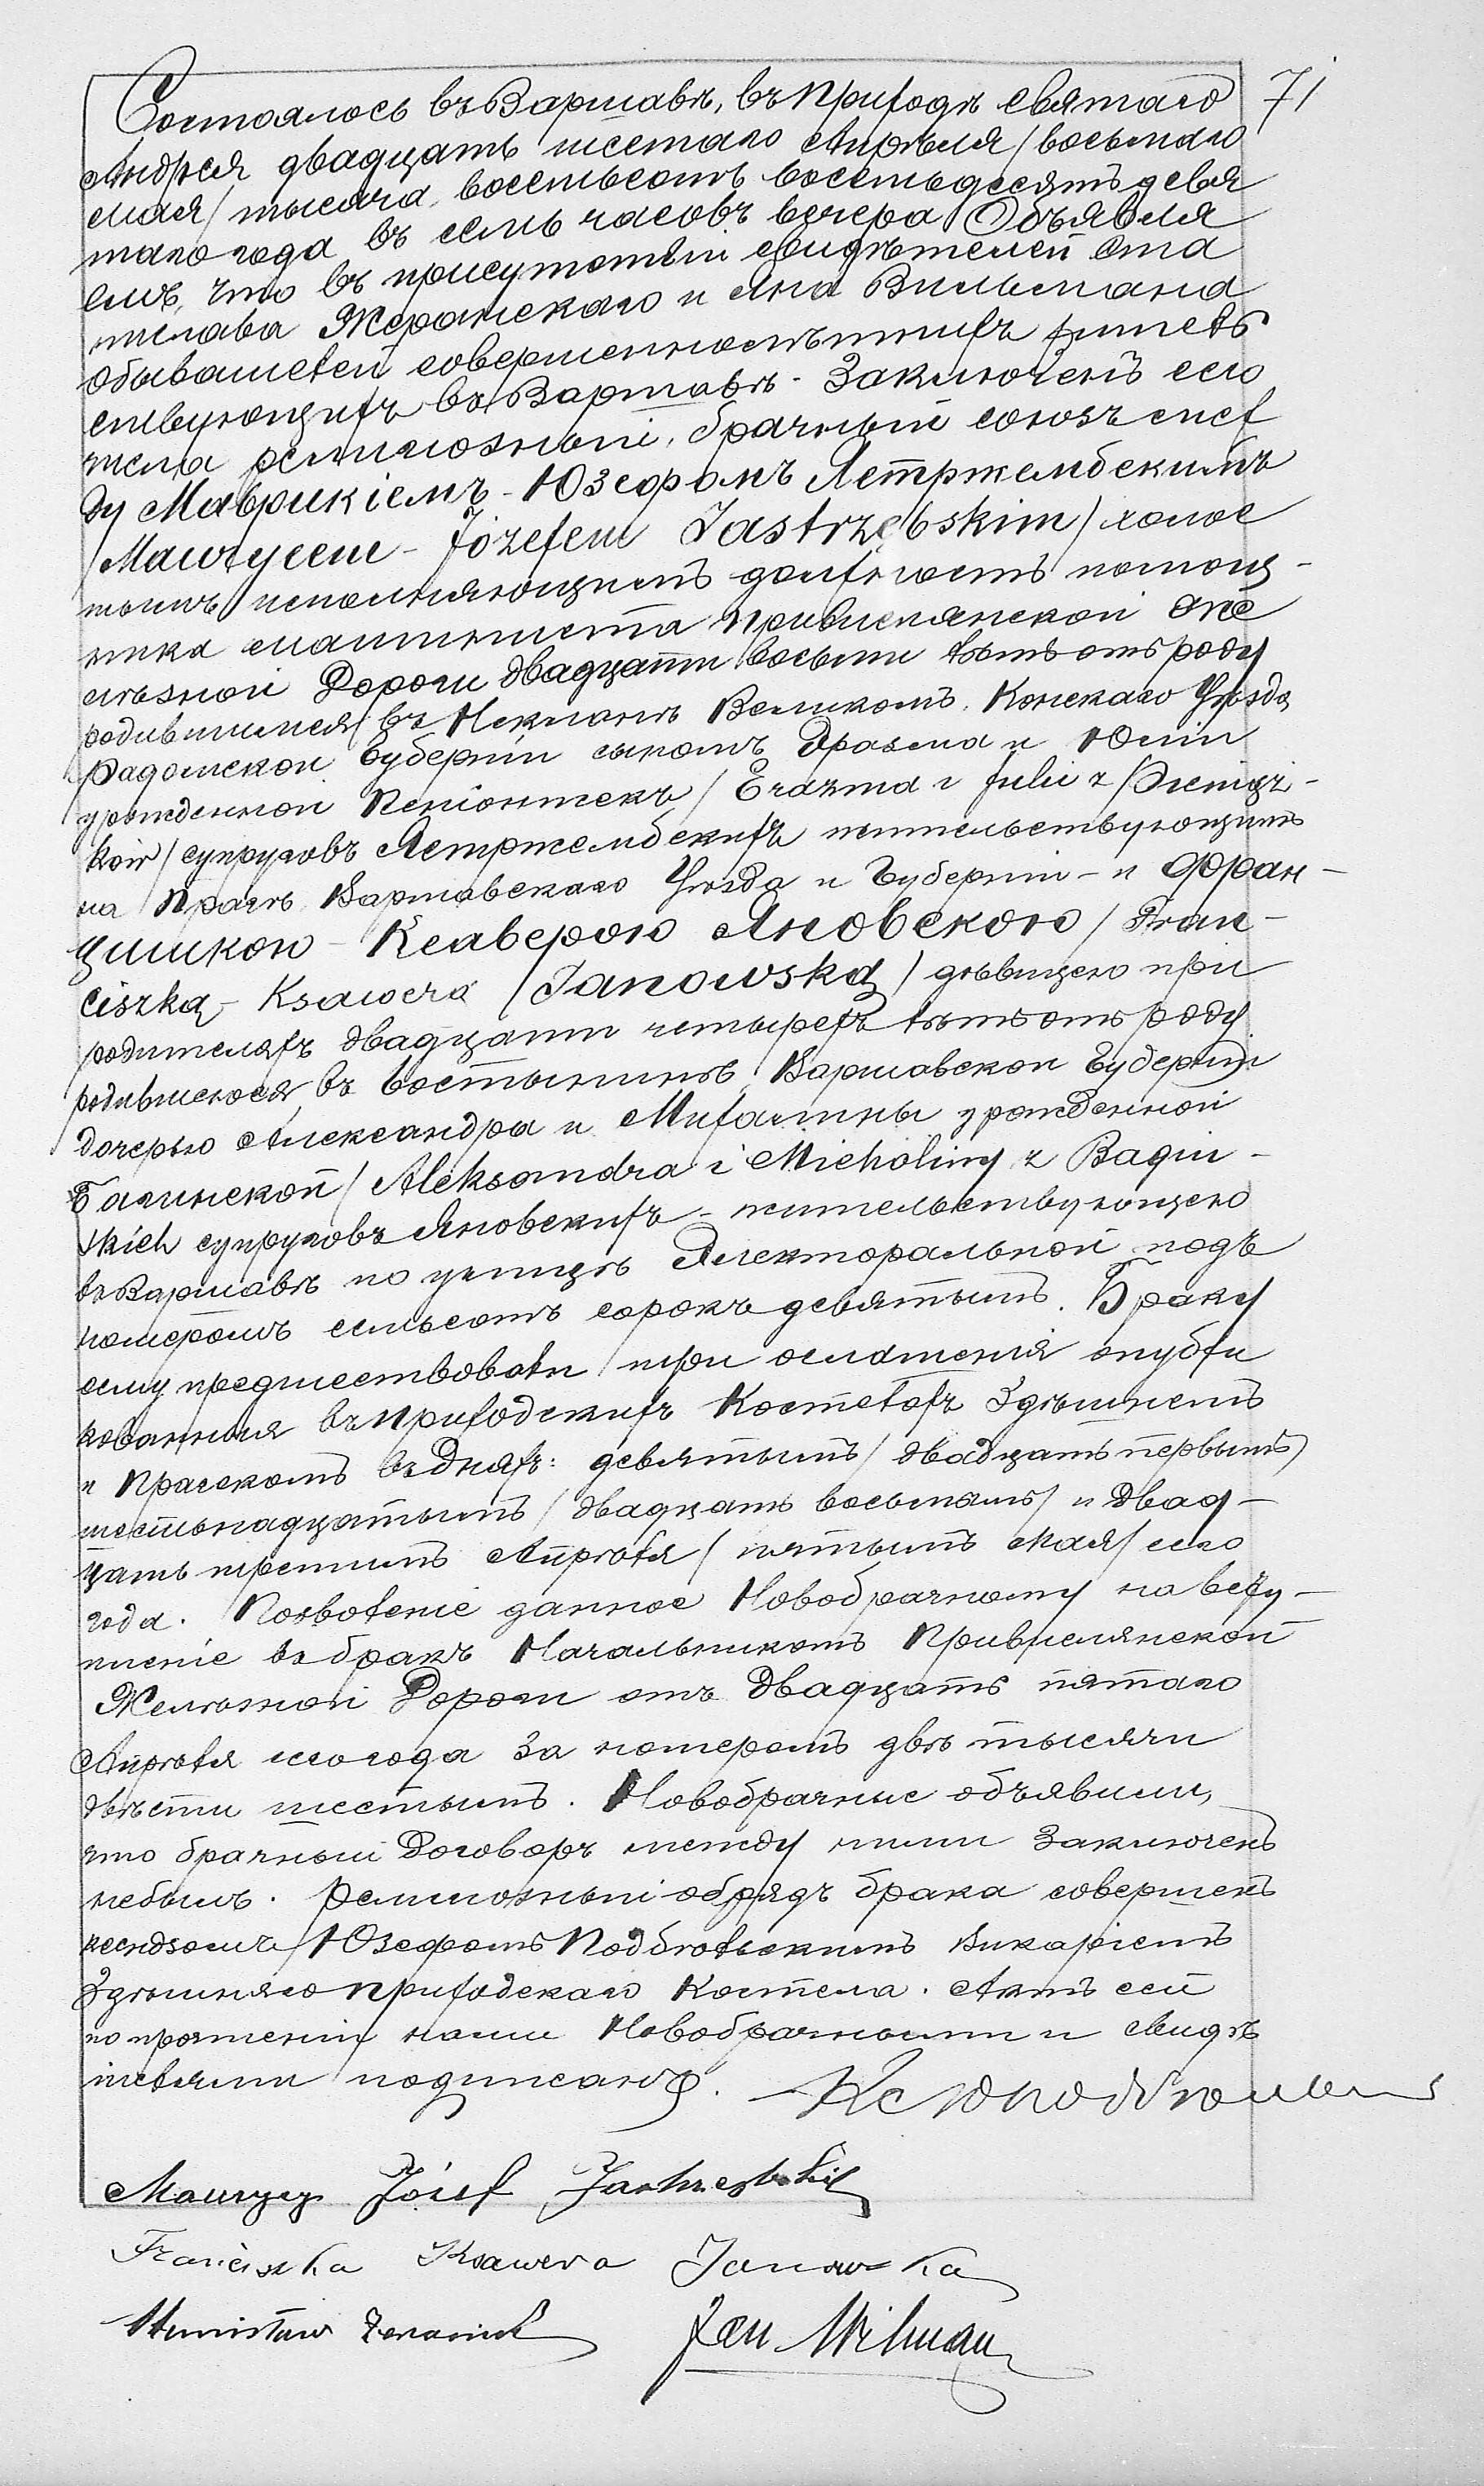 Состоялось въ Варшавѣ, въ приходѣ Святаго 71
Андрея двадцать шестаго Апрѣля / восьмаго
Мая / тысяча восемьсотъ восемьдесятъ девя
таго года въ семь часовъ вечера Объявля
емъ, что въ присутствіи свидѣтелей Ста
нислава Жеранскаго и Яна Вильмана
обывателей совершеннолѣтнихъ житель
ствующихъ въ Варшавѣ - Заключенъ сего
числа религіозный, брачный союзъ меж
ду Маврикіемъ - Юзефомъ Ястржембскимъ
/ Maurycem - Józefem Jastrzębskim / холос
тымъ исполняющимъ должность помощ-
ника машиниста Привислянской Же
лѣзной Дороги двадцати восьми лѣтъ отъ роду
родившимся въ Неклани Великомъ, Конскаго Уѣзда
Радомской Губерніи сыномъ Эразма и Юліи
урожденной Пеніонжекъ / Erazma i Julii z Pieniąż-
ków / супруговъ Ястржембскихъ жительствующимъ
на Прагѣ Варшавскаго Уѣзда и Губерніи - и Фран-
цишкою - Ксаверою Яновскою / Fran-
ciszką - Ksawerą Janowską / дѣвицею при
родителяхъ двадцати четырехъ лѣтъ отъ роду
родившеюся въ Гостынинѣ Варшавской Губерніи
дочерью Александра и Михалины урожденной
Багинской / Aleksandra i Michaliny z Bagiń-
skich супруговъ Яновскихъ - жительствующею
въ Варшавѣ по улицѣ Электоральной подъ
номеромъ семьсотъ сорокъ девятымъ. Браку
сему предшествовали три оглашенія опубли
кованныя въ приходскихъ Костелахъ Здѣшнемъ
и Пражскомъ въ дняхъ: девятымъ / двадцать первымъ /
шестьнадцатымъ / двадцать восьмымъ / и двад-
цать третьимъ Апрѣля / пятымъ Мая / сего
года. Позволеніе данное Новобрачному на всту-
пленіе въ бракъ Начальникомъ Привислянской
Желѣзной Дороги отъ двадцать пятаго
Апрѣля сего года за номеромъ двѣ тысячи
двѣсти шестымъ. Новобрачные объявили,
что брачный договоръ между ними заключенъ
небылъ. Религіозный обрядъ брака совершенъ
ксендзомъ Юзефомъ Подбѣльскимъ Викаріемъ
Здѣшняго приходскаго Костела. Актъ сей
по прочтеніи нами Новобрачными и свидѣ
телями подписанъ. Кс Ю Подбѣльскі
Maurycy Józef Jastrzębski
Franciszka Ksawera Janowska
Stanisław Żerański Jan Wilman